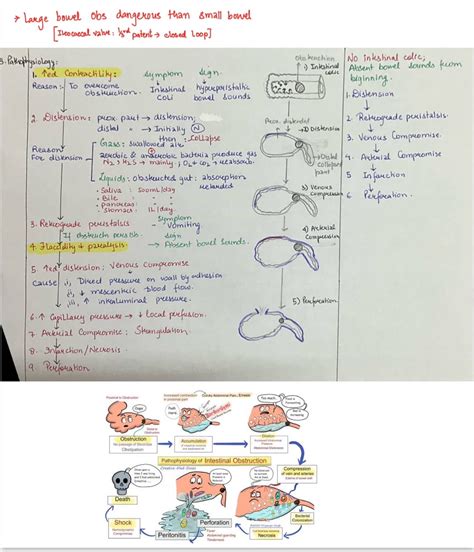 → Large bowel obs dangerous than small bowel
[Ileocaecal valve: 1/3rd patent → closed loop]
Pathophysiology:
1. ↑ed Contractility:
Symptom
Sign
Reason: To overcome obstruction.
Intestinal
Hyperperistaltic bowel sounds
2. Distension: prox part → distension;
distal → Initially (N)
then: collapse
Reason For distension
Gas: swallowed air
aerobic & anaerobic bacteria produce gas
N2 > H2S → mainly; O2 + CO2 → reabsorb.
Liquids: obstructed gut: absorption retarded
• Saliva: 500mL/day
• Bile
• pancreas
• stomach: 1L/day.
3. Retrograde peristalsis
Symptom
Vomiting
If obstructn persists.
Sign
4. Flaccidity & paralysis.
→ Absent bowel sounds.
5. ↑ed distension; Venous Compromise
cause
i, Direct pressure on wall by adhesion
ii, ↓ mesenteric blood flow.
iii, ↑ intraluminal pressure.
6. ↑ Capillary pressure → ↓ local perfusion.
7. Arterial Compromise: Strangulation
8. Infarction/Necrosis
9. Perforation
Obstruction
1) Intestinal colic
Prox. distended
2) Distension
Distal collapsed part
3) Venous Compression
4) Arterial Compression
5) Perforation
No intestinal colic,
Absent bowel sounds from
beginning.
1. Distension
2. Retrograde peristalsis.
3. Venous Compromise
4. Arterial Compromise
5 Infarction
6 Perforation.
Obstruction
Accumulation
Distention
Pathophysiology of Intestinal Obstruction
Compression
of vein and arteries
Bacterial
Colonization
Necrosis
Perforation
Peritonitis
Shock
Death